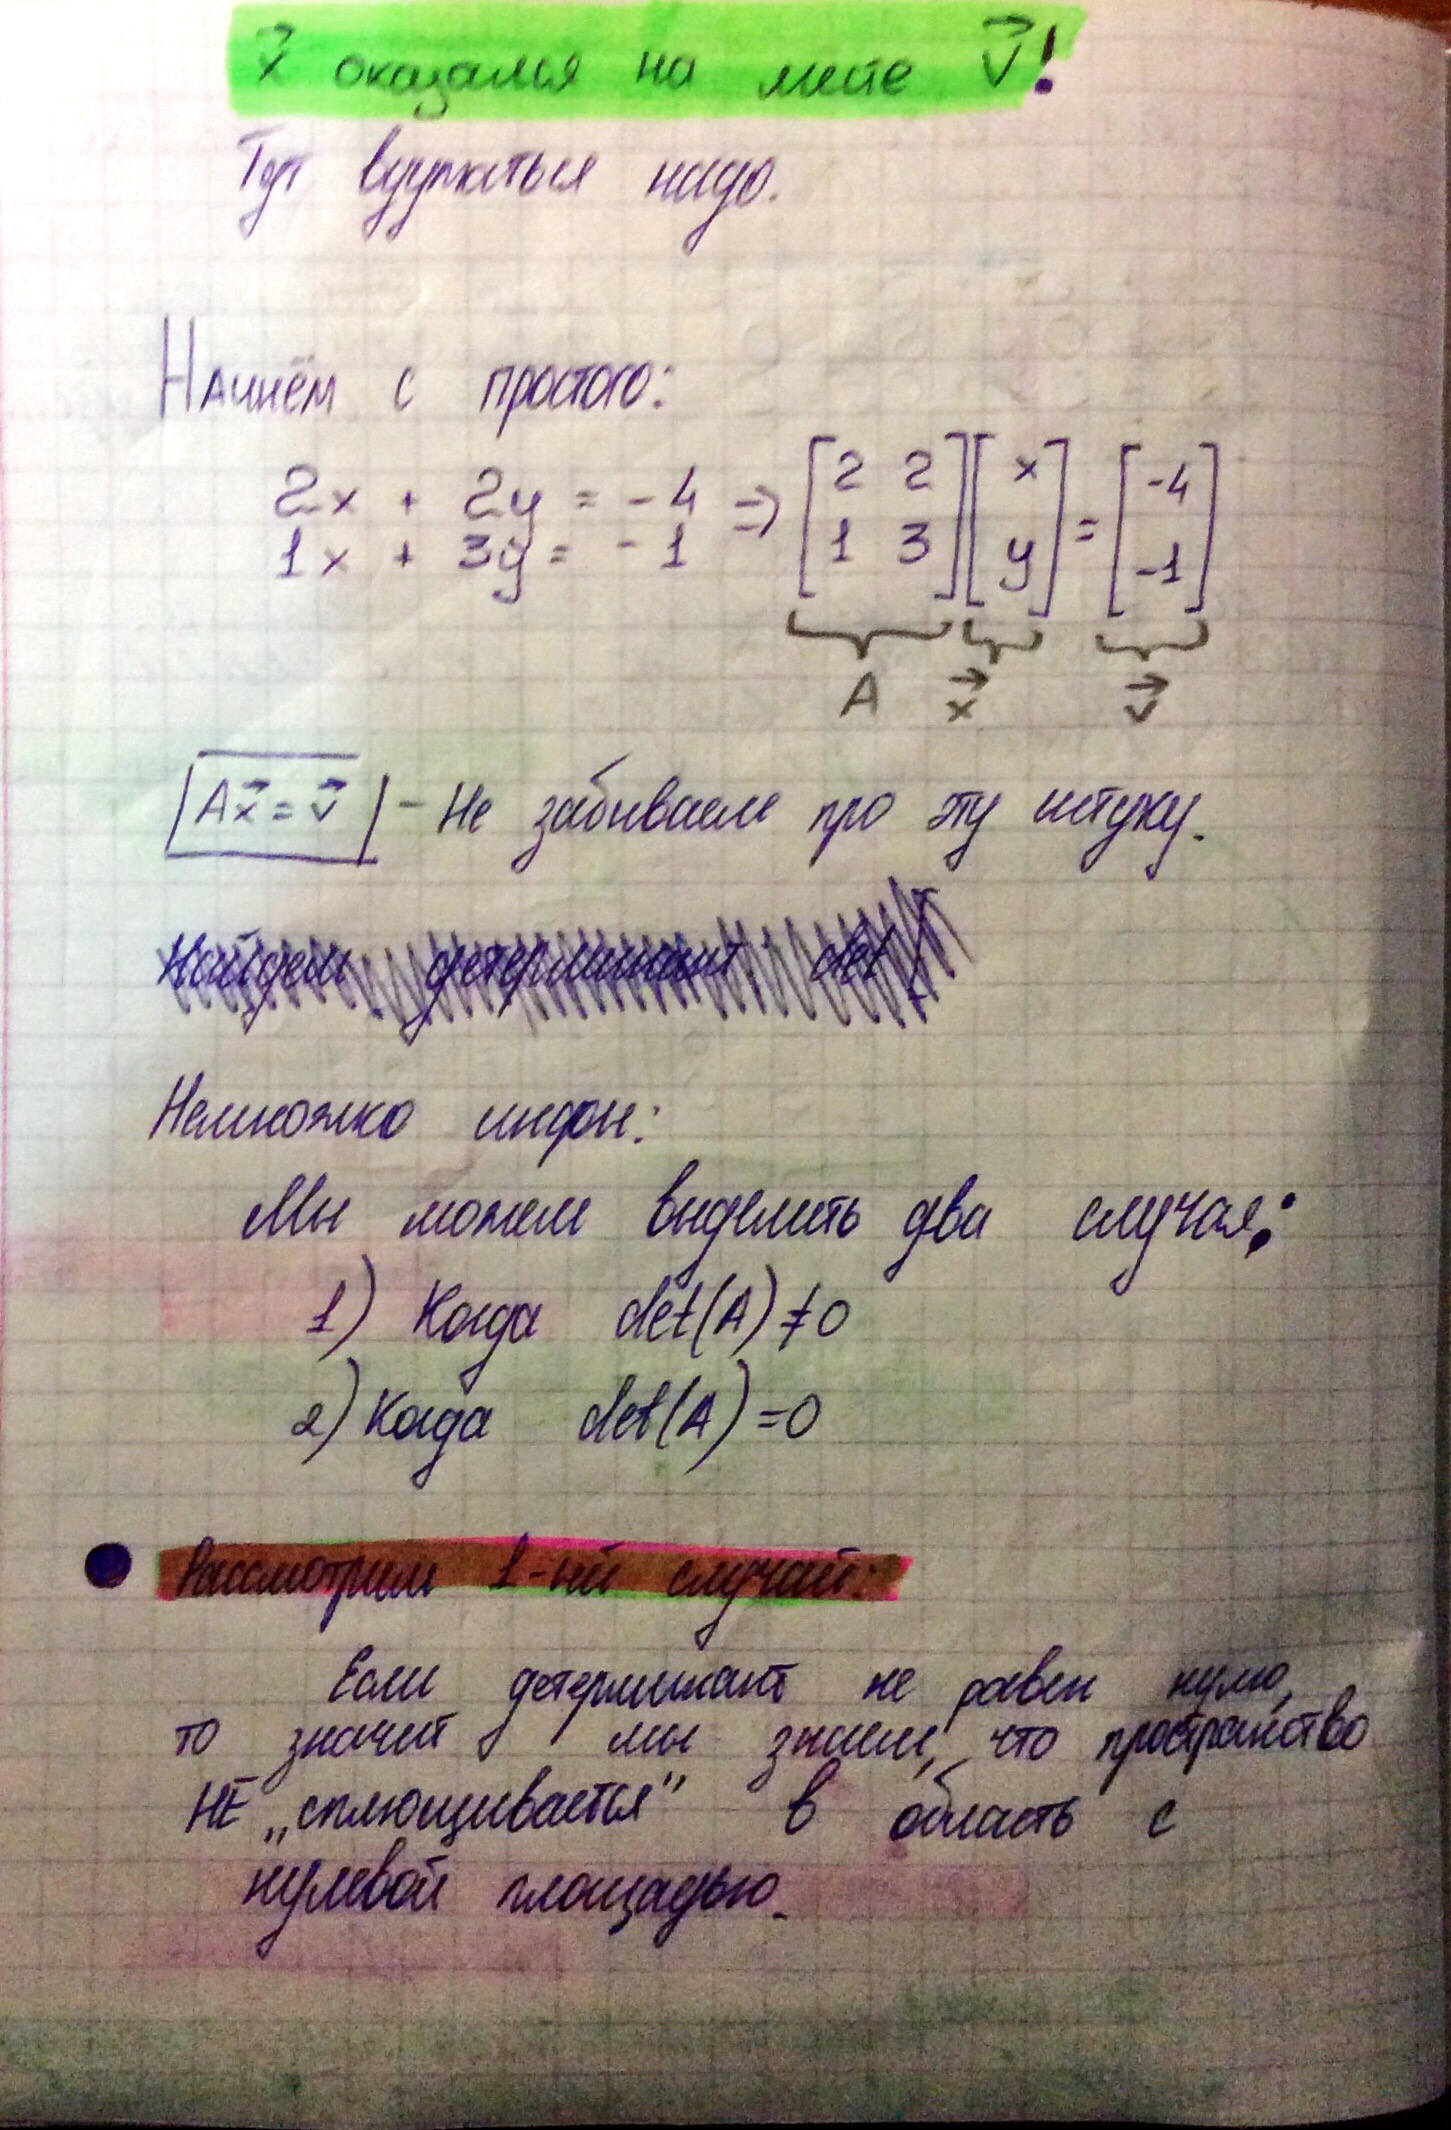 x⃗ оказался на месте v⃗!
Тут вдуматься надо.
Начнём с простого:
2x + 2y = -4 ⇒ [2 2] [x] = [-4]
1x + 3y = -1 [1 3] [y] [-1]
A x⃗ v⃗
Ax⃗ = v⃗ - Не забываем про эту штуку.
Найдем детерминант det
Немножко инфы:
Мы можем выделить два случая:
1) Когда det(A) ≠ 0
2) Когда det(A) = 0
Рассмотрим 1-ый случай:
Если детерминант не равен нулю,
то значит мы знаем, что пространство
НЕ „сплющивается" в область с
нулевой площадью.